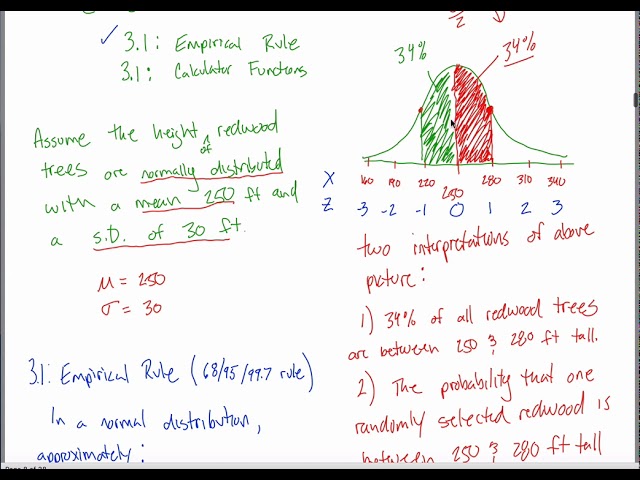 ✓ 3.1: Empirical Rule
3.1: Calculator Functions
Assume the height of redwood
trees are normally distributed
with a mean 250 ft and
a S.D. of 30 ft.
μ = 250
σ = 30
3.1: Empirical Rule (68/95/99.7 rule)
In a normal distribution,
approximately:
2
34%
34%
X 160 190 220 250 280 310 340
Z -3 -2 -1 0 1 2 3
two interpretations of above
picture:
1) 34% of all redwood trees
are between 250 & 280 ft tall.
2) The probability that one
randomly selected redwood is
between 250 & 280 ft tall